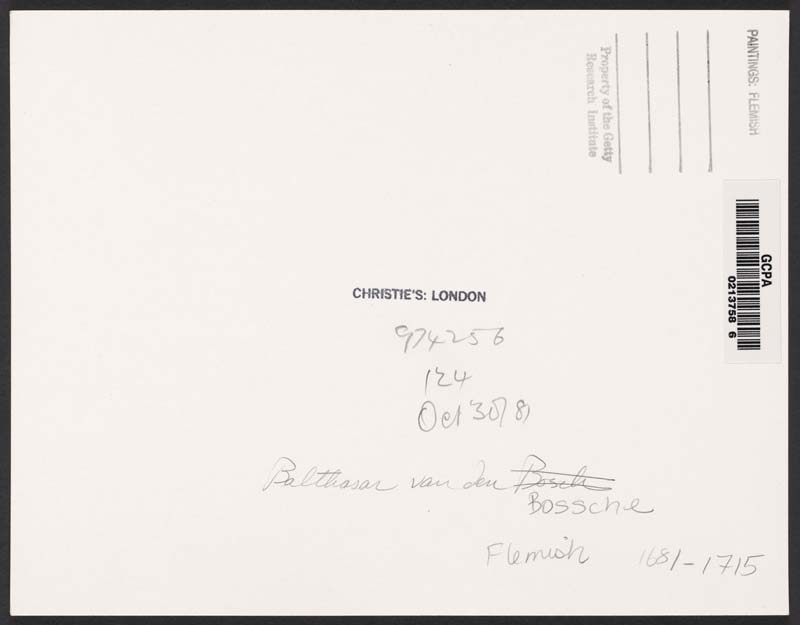 PAINTINGS: FLEMISH
Property of the Getty
Research Institute
GCPA
0213758 6
CHRISTIE'S: LONDON
974256
124
Oct 30/81
Balthasar van den Bosch
Bossche
Flemish 1681-1715